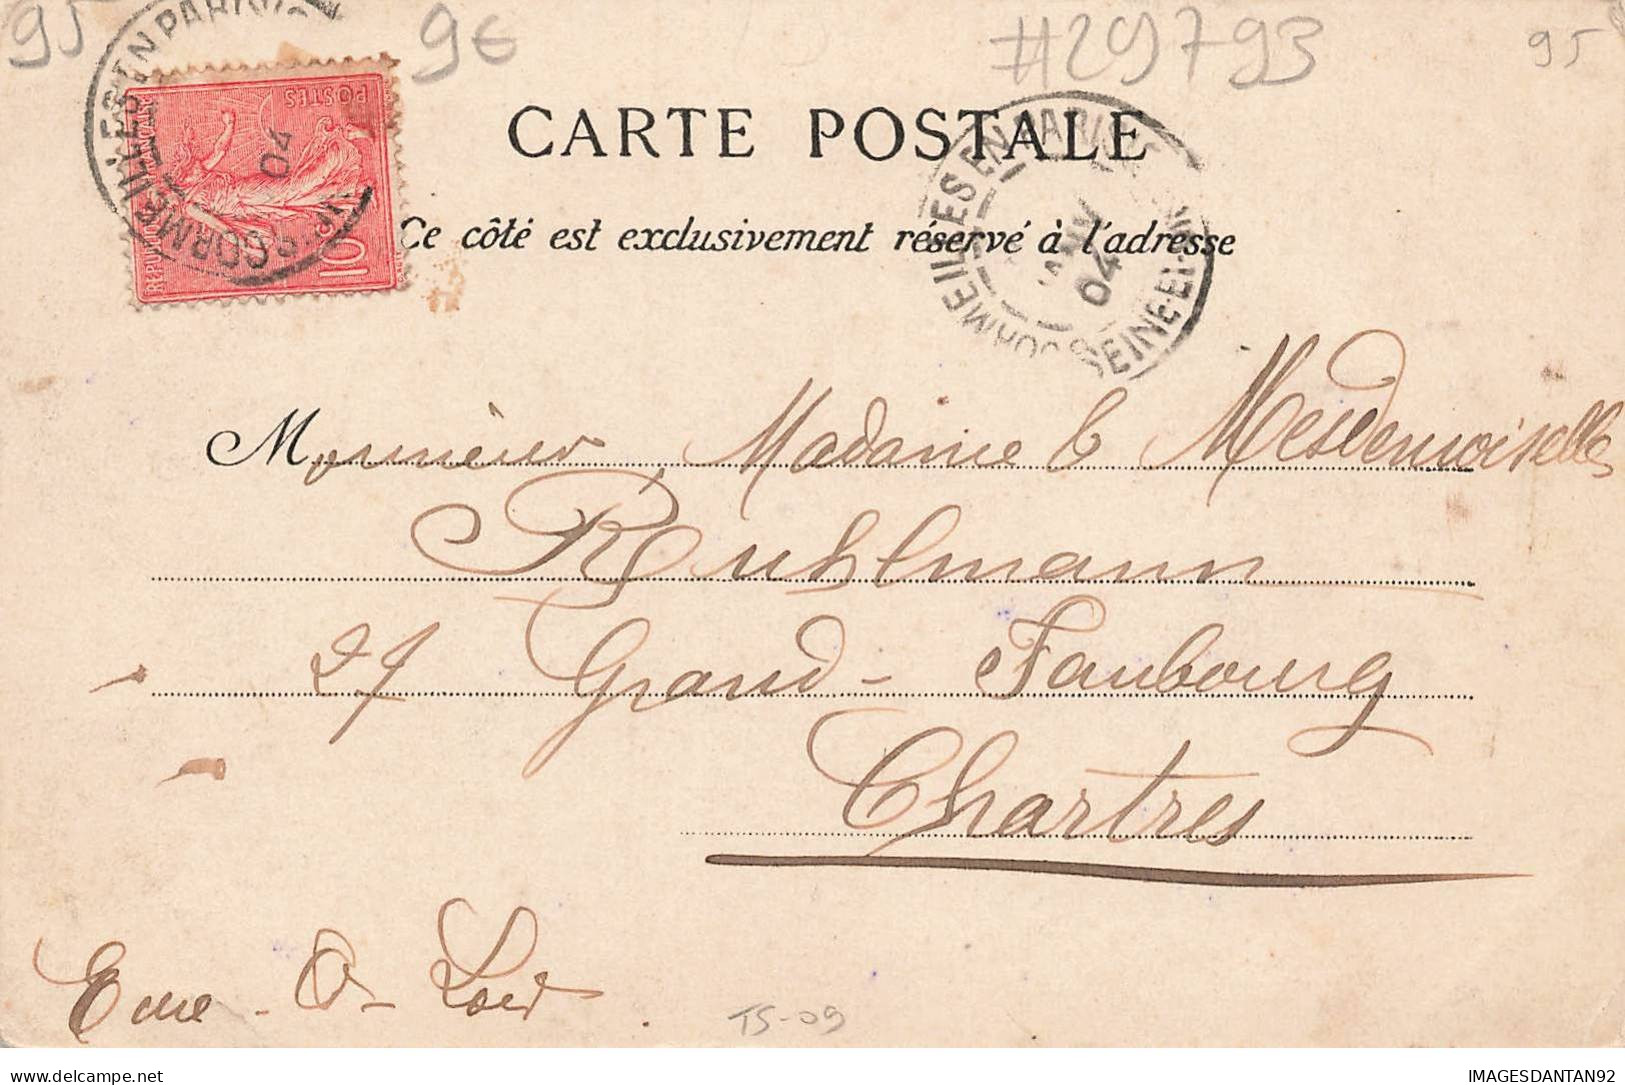 95 9€ #29793 95
CORMEILLES EN PARISIS
04
POSTES
10c
CARTE POSTALE
CORMEILLES EN PARISIS SEINE-ET-
JANV
04
Ce côté est exclusivement réservé à l'adresse
Monsieur Madame & Mesdemoiselles
Ruhlmann
27 Grand-Faubourg
Chartres
Eure-&-Loir
TS-09
IMAGESDANTAN92
delcampe.net